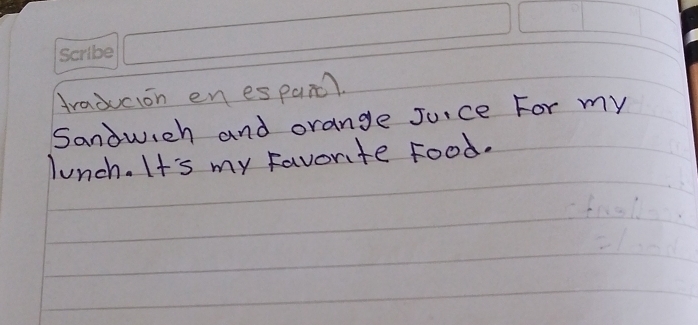 Scribe
tradución en español.
Sandwich and orange Juice For my
lunch. It's my Favorite Food.